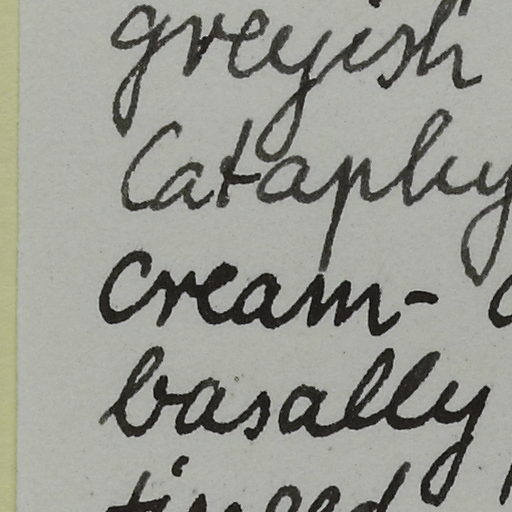 greyish
Cataphy
cream-
basally
tinged